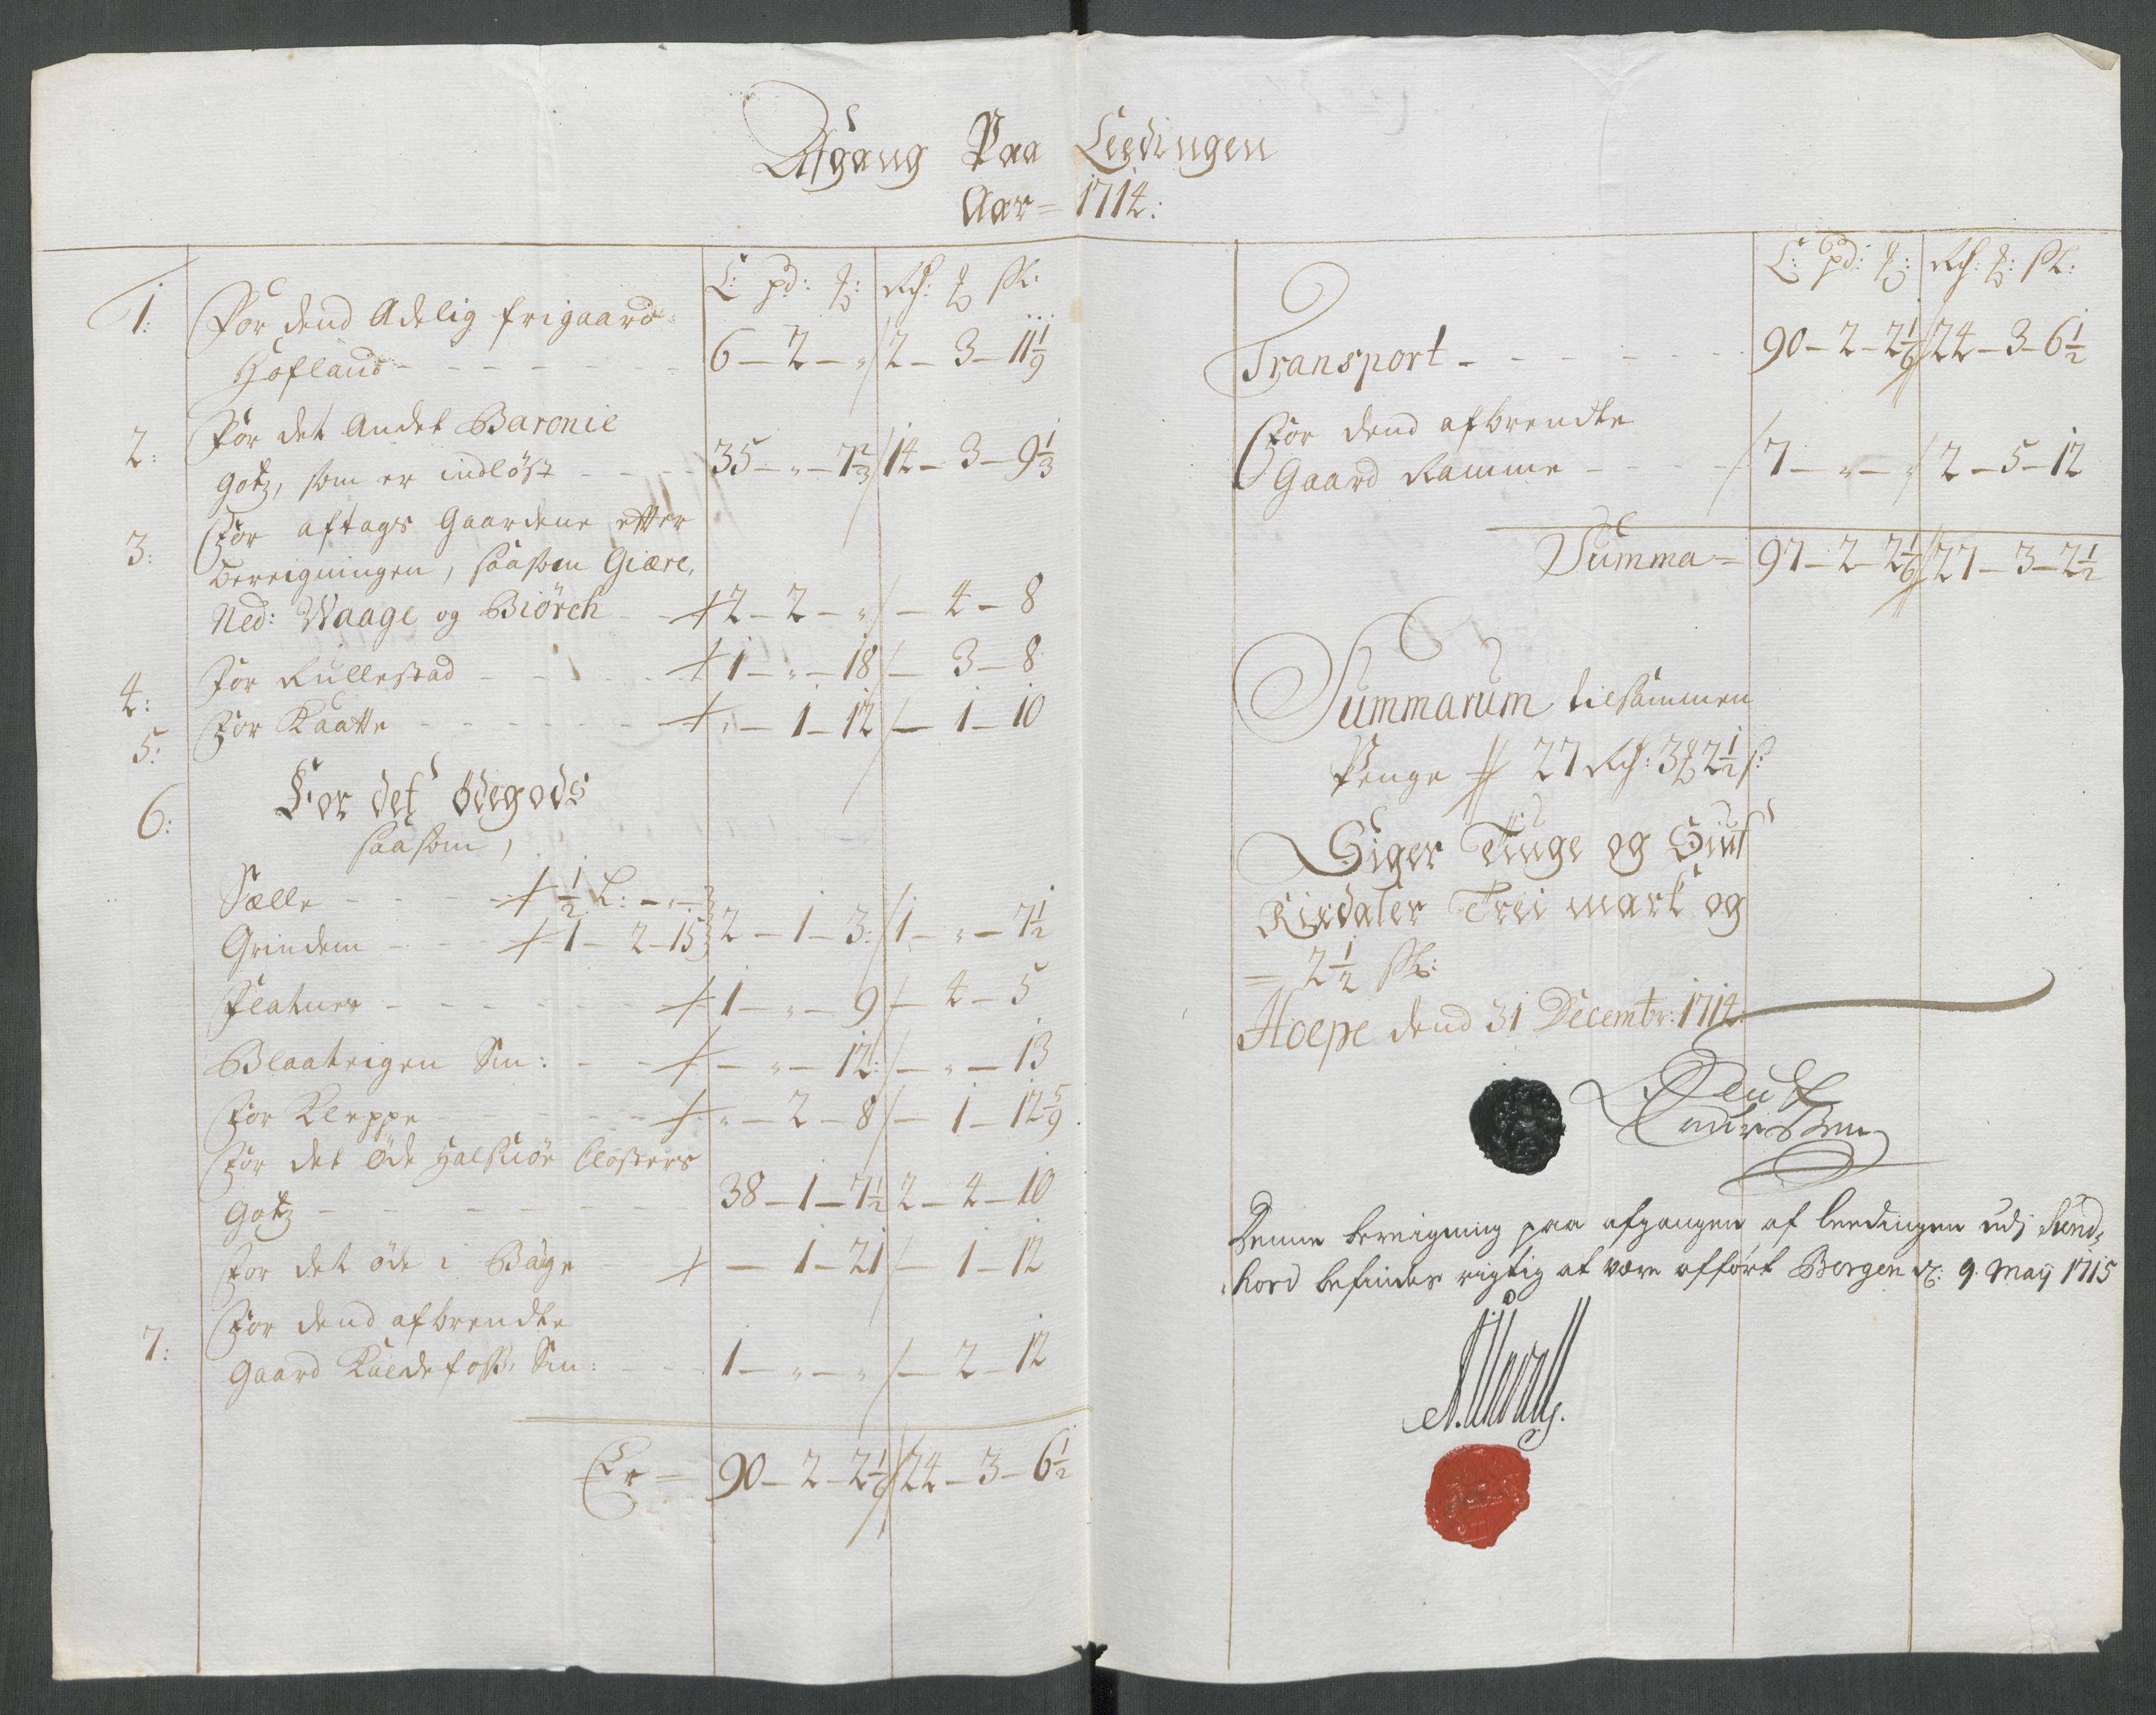 Afgang Paa Leedingen
Aar = 1714:
L: pd: ℔: Rd: ℔ ſk:
1: For dend Adelig frigaard
Hofland - - - - - - 6 - 2 - " / 2 - 3 - 11 1/9
2: For det Andet Baronie
Gotz, som er indløst - - - 35 - " - 7 2/3 / 14 - 3 - 9 1/3
3: For aftags Gaardene efter
bereigningen, saasom Giære,
Ned: Waage og Biørch - - 2 - 2 - " / - 4 - 8
4: For Rullestad - - - - 1 - " - 18 / - 3 - 8
5: For Kaatte - - - - - " - 1 - 12 / - 1 - 10
6: For det ødegods
saasom,
Sælle - - - - 1/2 L: - " -
Grindem - - - 1 - 2 - 15 2 - 1 - 3: / 1 - " - 7 1/2
Flatnes - - - - - - 1 - " - 9 / - 4 - 5
Blaateigen Sm: - - - " - 12: / - " - 13
For Kleppe - - - - - " - 2 - 8 / - 1 - 12 5/9
For det øde Halsnøe Closters
Gotz - - - - - - 38 - 1 - 7 1/2 2 - 4 - 10
For det øde i Bage - - 1 - 21 / - 1 - 12
7: For dend afbrendte
Gaard Kaldefoss: Sm: - - 1 - " - " / - 2 - 12
Er = 90 - 2 - 2 1/6 / 24 - 3 - 6 1/2
L: pd: ℔: Rd: ℔: ſk:
Transport - - - - - - 90 - 2 - 2 1/6 / 24 - 3 - 6 1/2
For dend afbrendte
Gaard Ramme - - - - / 7 - " - " / 2 - 5 - 12
Summa = 97 - 2 - 2 1/6 / 27 - 3 - 2 1/2
Summarum tilsammen
Penge 27 Rd: 3 ℔ 2 1/2 ſ:
Siger Tiuge og Siuf
Rixdaler Trei mark og
= 2 1/2 ſk:
Hoepe dend 31 Decembr: 1714.
Denne bereigning paa afgangen af leedingen udj Sund,
hord befindes rigtig at være afført Bergen d: 9. Maij 1715